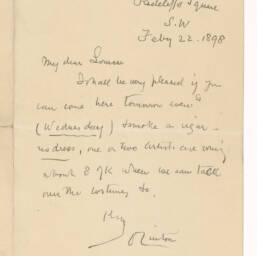 Radcliffe Square
S.W
Feby 22. 1898
My dear
I shall be very pleased if you
can come here tomorrow even^g
(Wednesday) & smoke a cigar -
no dress, one or two artists are coming
about 8 o'/K when we can talk
over the costumes &c.